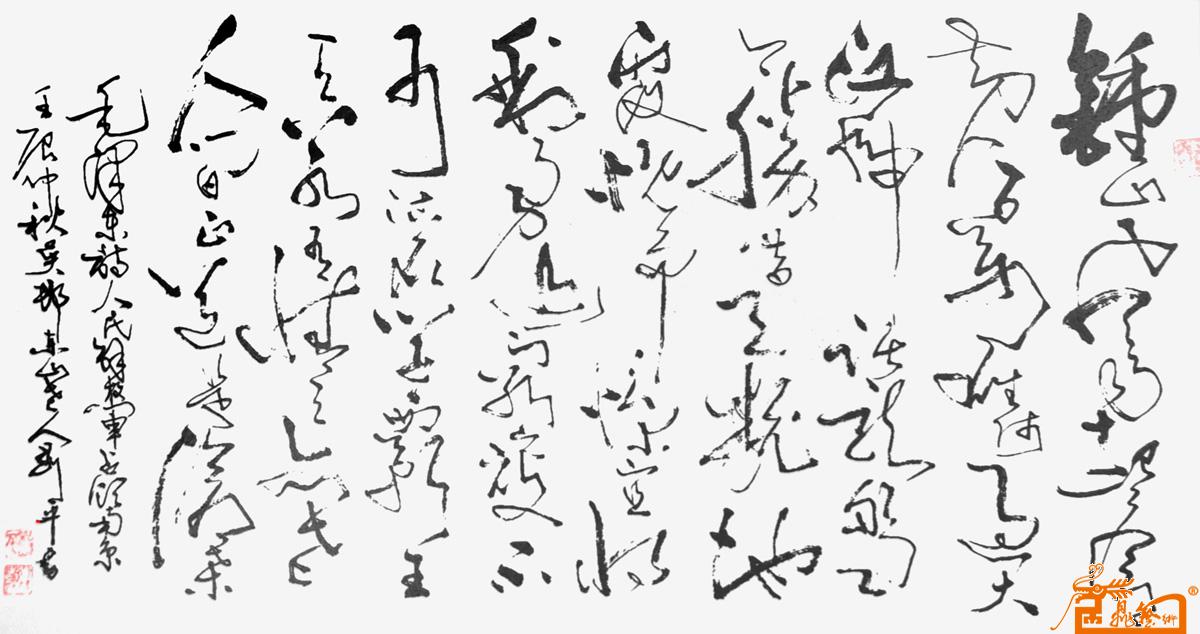 鍾山风雨起苍
黄百万雄师过大
江虎踞龙盘
今胜昔天翻地
覆慨而慷宜将
剩勇追穷寇不
可沽名学霸王
天若有情天亦老
人间正道是沧桑
毛泽东诗人民解放军占领南京
壬辰仲秋吴郡东山老人剑平书